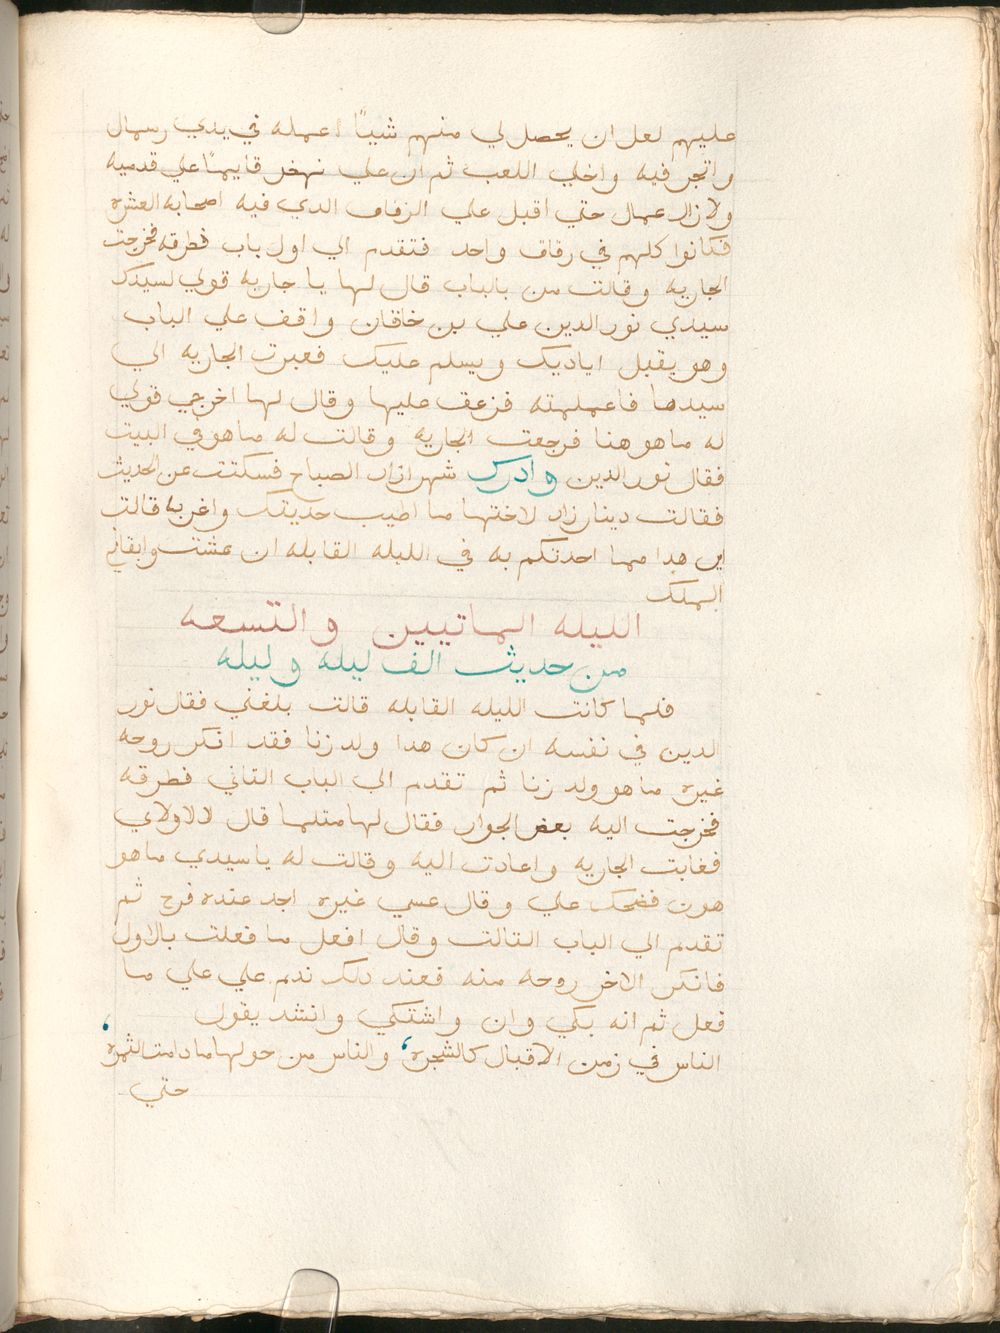 عليهم لعل ان يحصل لي منهم شيئًا اعمله في يدي رسمال
واتجر فيه واخلي اللعب ثم ان علي نهض قايمًا علي قدميه
ولازال عمال حتي اقبل علي الزقاق الدي فيه اصحابه العشره
فكانوا كلهم في زقاق واحد فتقدم الي اول باب فطرقه فخرجت
الجاريه وقالت من بالباب قال لها يا جاريه قولي لسيدك
سيدي نور الدين علي بن خاقان واقف علي الباب
وهو يقبل اياديك ويسلم عليك فعبرت الجاريه الي
سيدها فاعملمته فزعق عليها وقال لها اخرجي قولي
له ما هو هنا فرجعت الجاريه وقالت له ما هو في البيت
فقال نور الدين وادرك شهرازاد الصباح فسكتت عن الحديث
فقالت دينارزاد لاختها ما اطيب حديتك واغربه قالت
اين هدا مما احدتكم به في الليله القابله ان عشت وابقاني
الملك
الليله الماتيين والتسعه
من حديث الف ليله وليله
فلما كانت الليله القابله قالت بلغني فقال نور
الدين في نفسه ان كان هدا ولد زنا فقد انكر روحه
غيره ما هو ولد زنا ثم تقدم الي الباب التاني فطرقه
فخرجت اليه بعض الجوار فقال لها متلما قال لالاولاي
فغابت الجاريه واعادت اليه وقالت له يا سيدي ما هو
هون فضحك علي وقال عسي غيره اجد عنده فرج ثم
تقدم الي الباب التالت وقال افعل ما فعلت بالاول
فانكر الاخر روحه منه فعند دلك ندم علي علي ما
فعل ثم انه بكي وان واشتكي وانشد يقول
الناس في زمن الاقبال كالشجره ، والناس من حولها ما دامت الثمره ،
حتي